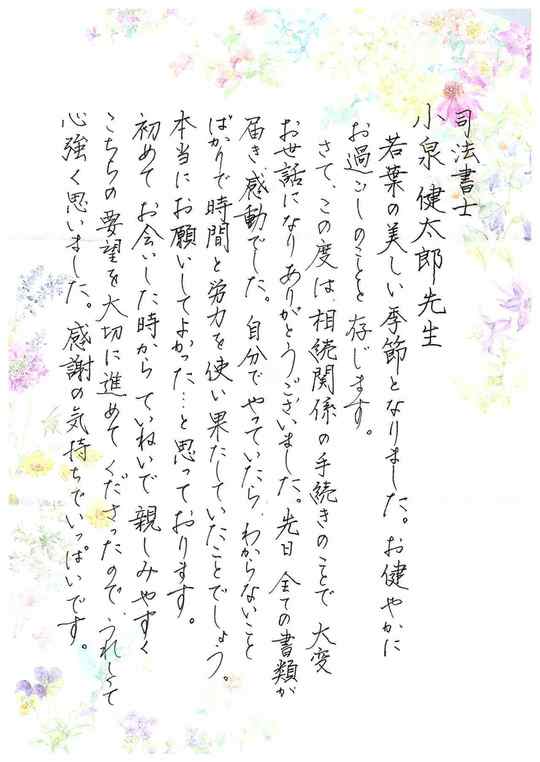 司法書士
小泉 健太郎先生
若葉の美しい季節となりました。お健やかに
お過ごしのことと存じます。
さて、この度は、相続関係の手続きのことで 大変
お世話になりありがとうございました。先日 全ての書類が
届き、感動でした。自分でやっていたら、わからないこと
ばかりで時間と労力を使い果たしていたことでしょう。
本当にお願いしてよかった…と思っております。
初めて お会いした時からていねいで親しみやすく
こちらの要望を大切に進めて くださったので、うれしくて
心強く思いました。感謝の気持ちでいっぱいです。